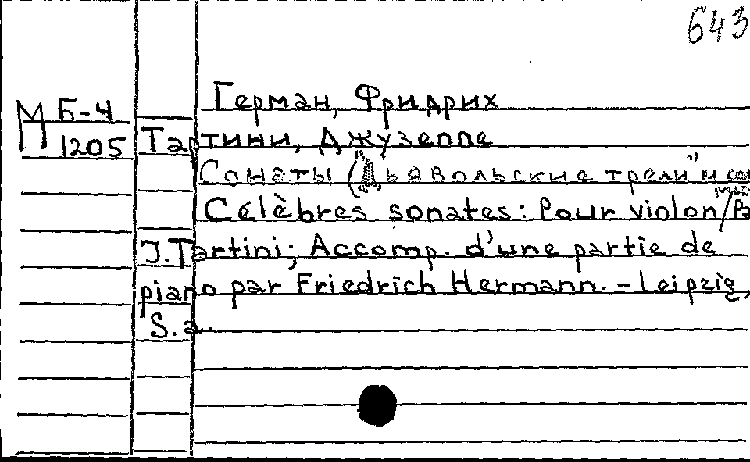 643
Герман, Фридрих
М Б-4
1205
Тартини, Джузеппе
Сонаты ("Дьявольские трели" и
Célèbres sonates: Pour violon /
J. Tartini; Accomp. d'une partie de
piano par Friedrich Hermann. - Leipzig,
S. a.